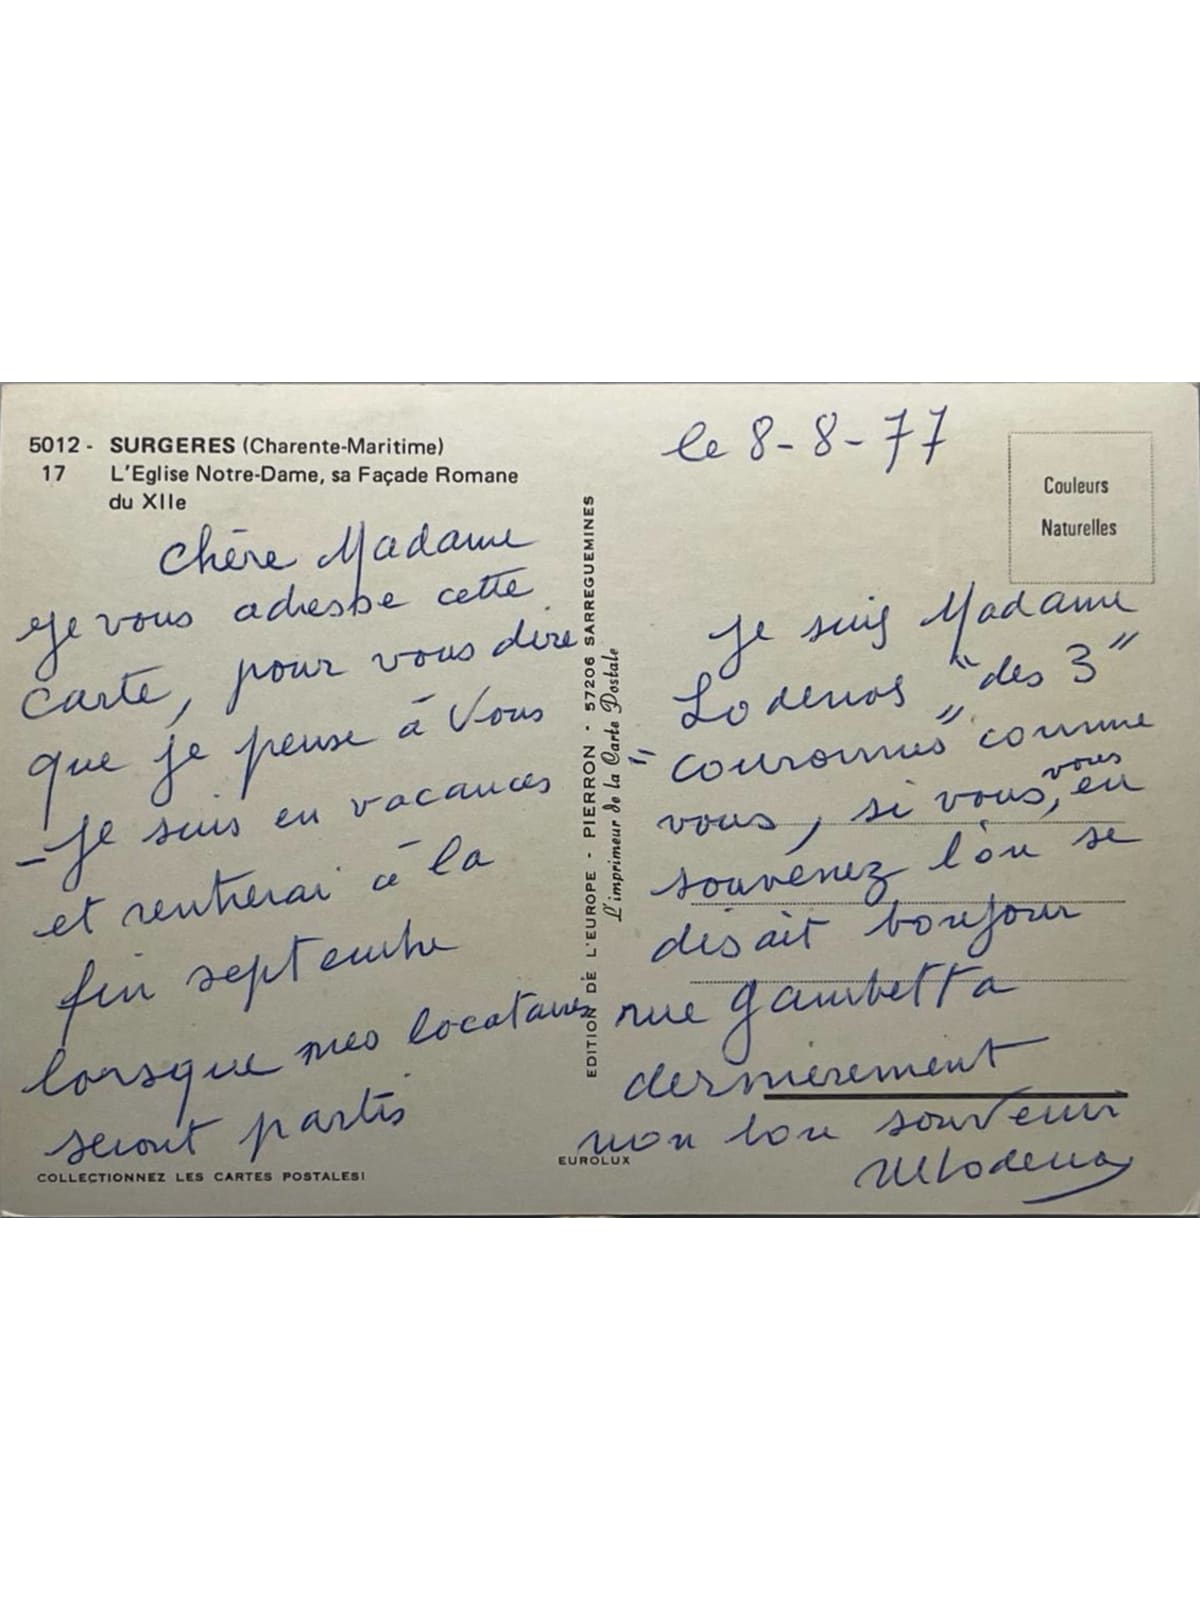 5012 - SURGERES (Charente-Maritime)
17 L'Eglise Notre-Dame, sa Façade Romane
du XIIe
chère Madame
Je vous adresse cette
carte, pour vous dire
que je pense à Vous
- Je suis en vacances
et rentrerai à la
fin septembre
lorsque mes locataires
seront partis
COLLECTIONNEZ LES CARTES POSTALES!
EDITION DE L'EUROPE - PIERRON - 57206 SARREGUEMINES
L'imprimeur de la Carte Postale
EUROLUX
le 8-8-77
Couleurs
Naturelles
Je suis Madame
"des 3"
"couronnes" comme
vous, si vous, vous en
souvenez l'on se
disait bonjour
rue Gambetta
dernièrement
mon bon souvenir